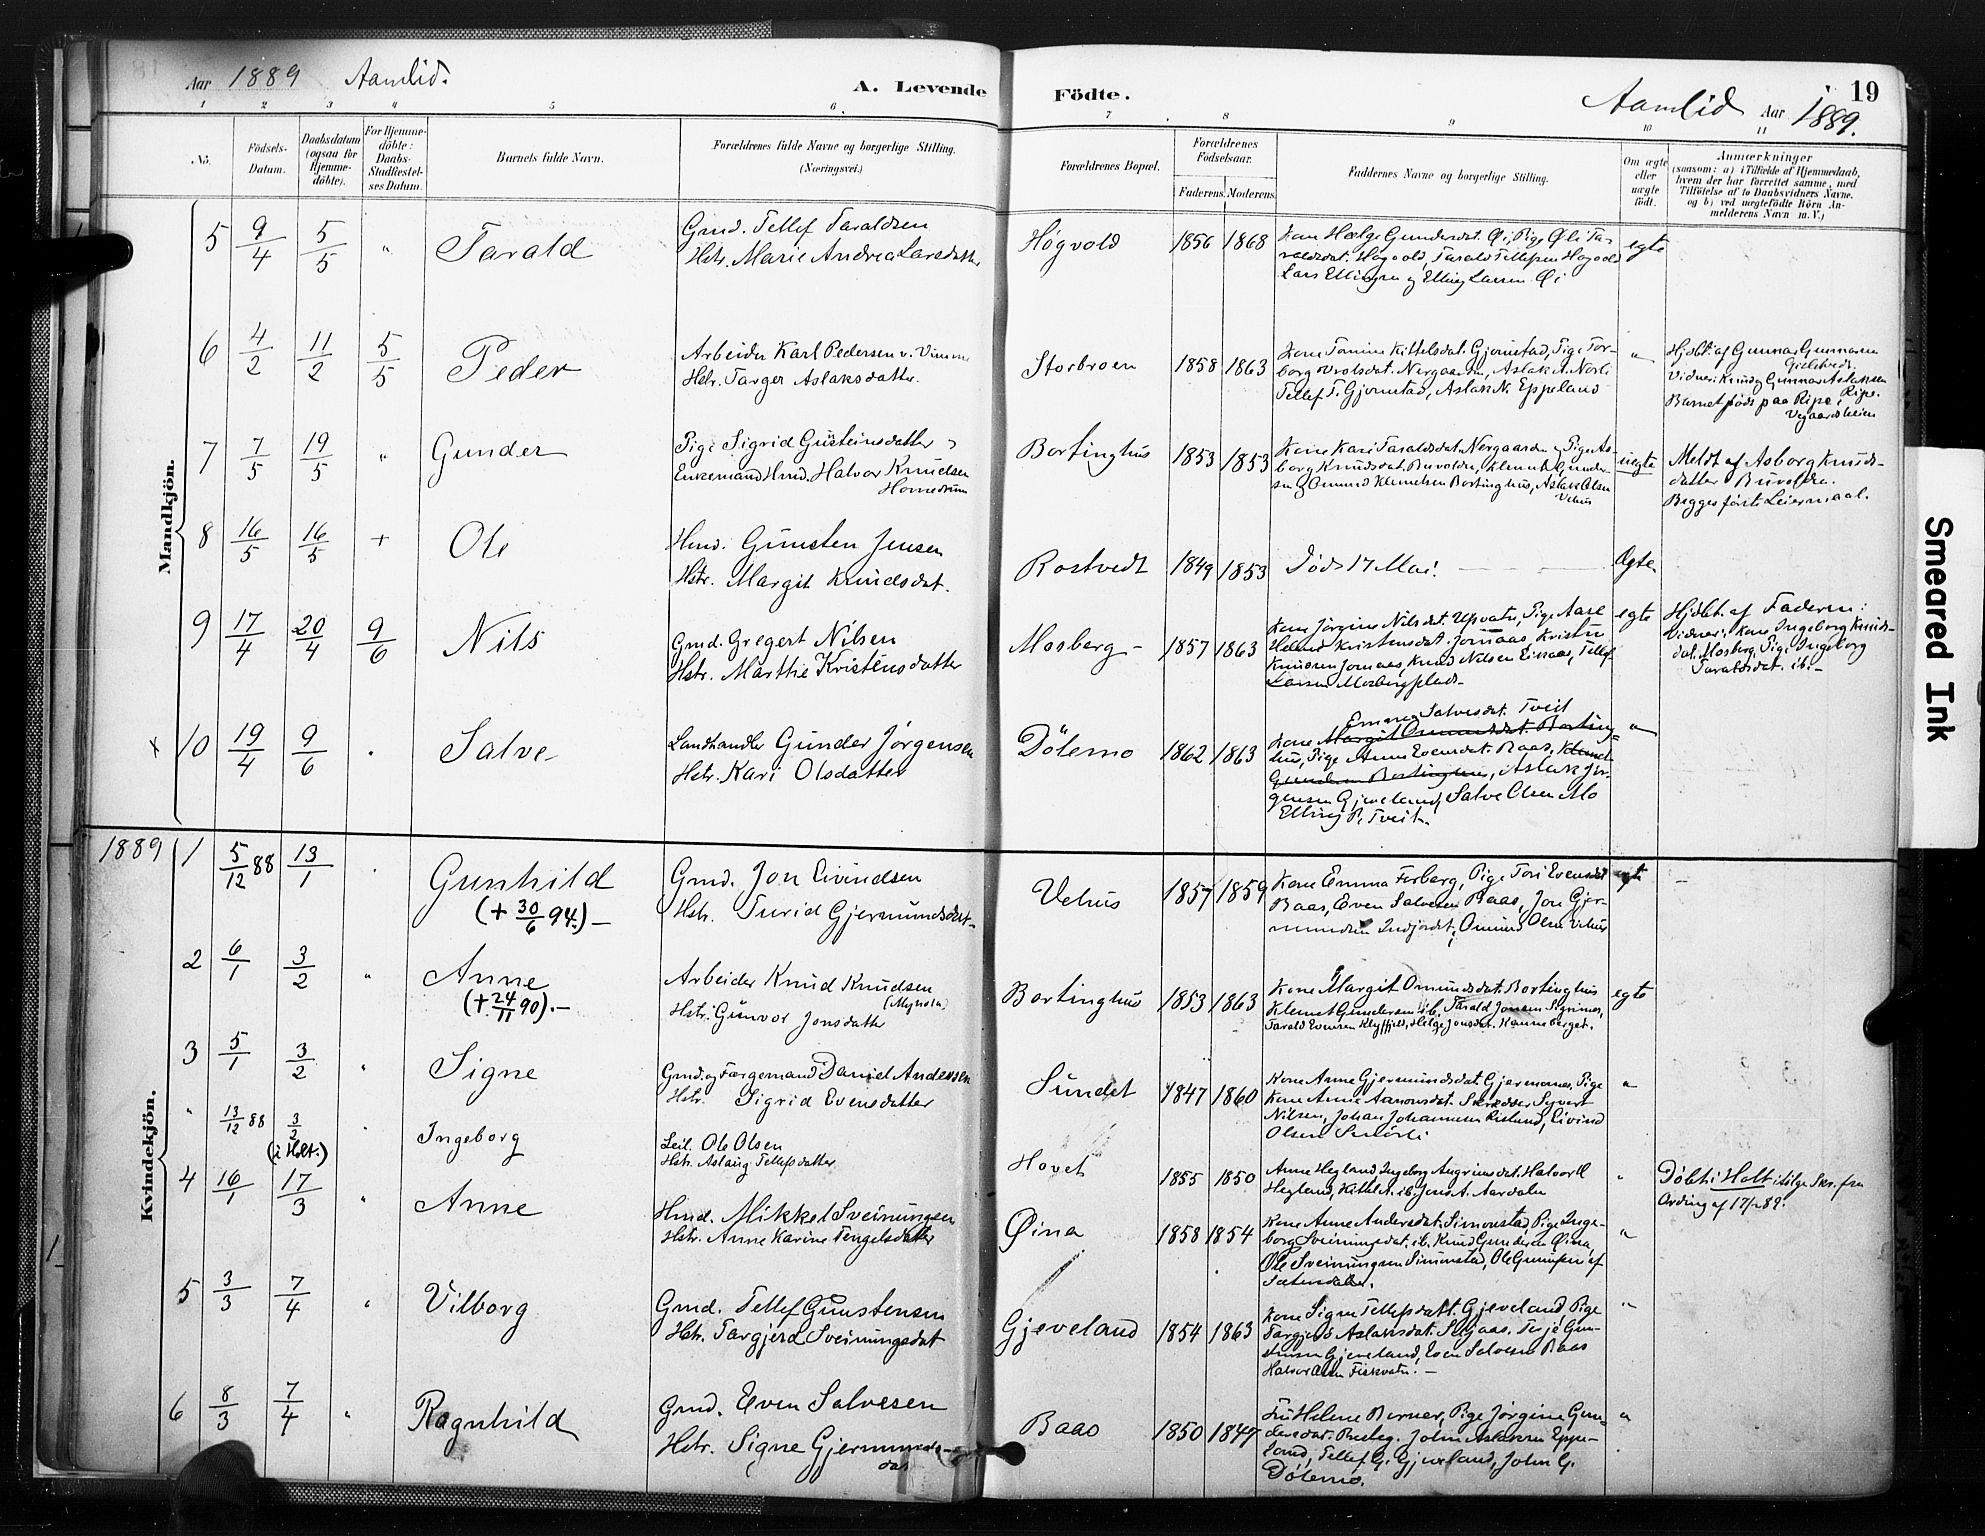 Aar 1889 Aamlid.
A. Levende
Födte.
Aamlid Aar 1889.
19
1 2 3 4 5 6. 7 8 9 10 11
No.
Födsels-
Datum.
Daabsdatum
(ogsaa for
Hjemme-
döbte).
For Hjemme-
döbte:
Daabs-
Stadfæstel-
ses Datum.
Barnets fulde Navn.
Forældrenes fulde Navne og borgerlige Stilling.
(Næringsvei.)
Forældrenes Bopæl.
Forældrenes
Födselsaar.
Faderens. Moderens.
Faddernes Navne og borgerlige Stilling.
Om ægte
eller
uægte
födt.
Anmærkninger
(saasom: a) i Tilfælde af Hjemmedaab,
hvem der har forrettet samme, med
Tilföielse af to Daabsvidners Navne.
og b) ved uægtefödte Börn An-
melderens Navn m. V.)
Mandkjön.
5 9/4 5/5 " Tarald
Gmd. Tellef Taraldsen
Hstr. Marie Andrea Larsdatter
Høgvold 1856 1868
Kone Hælge Gundersdat. Øi, Pige Øli Ta-
raldsdat. Høgvold, Tarald Tellefsen Høgvold
Lars Ellingsen og Elling Larsen Øi
egte
6 4/2 11/2 5/5 Peder
Arbeider Karl Pedersen v.
Hstr. Targer Aslaksdatter.
Storbroen 1858 1863
Kone Tomine Kittelsdat. Gjømstad, Pige Tor-
borg Nergaarden, Aslak
Tellef T. Gjømstad, Aslak N. Eppeland
"
Hjdbt. af Gunnar Gunnarsen
Vidner: Knud og Gunnar Aslaksen
Ripe.
Barnet født paa Ripe,
7 7/5 19/5 " Gunder
Pige Sigrid Gusteinsdatter
Enkemand Hmd. Halvor Knudsen
Homedrum
Bortinghus 1853 1853
Kone Kari Taraldsdat. Nergaarden, Pige As-
borg Knudsdat. Buvolden, Klemet Gunder-
sen og Omund Klemetsen Bortinghus, Aslak Olsen
Vehus
uegte
Meldt af Asborg Knuds-
datter Buvolden.
Begges første Leiermaal.
8 16/5 16/5 + Ole
Hmd. Gunsten Jensen
Hstr. Margit Knudsdat.
Rostvedt 1849 1853 Død 17 Mai. Ægte
9 17/4 20/4 9/6 Nils
Gmd. Gregert Nilsen
Hstr. Marthe Kristensdatter
Mosberg - 1857 1863
Kone Jørgine Nilsdat. Upvatn, Pige Aase
Helene Kristensdat. Jomaas, Kristen
Knudsen Jomaas, Knud Nilsen Eirsaas, Tellef
Larsen Mosbergplads-
egte
Hjdbt. af Faderen:
Vidner: Kone Ingeborg Knuds-
dat. Mosberg, Pige Ingeborg
Taraldsdat. ib.-
x 10 19/4 9/6 " Salve
Landhandler Gunder Jørgensen
Hstr. Kari Olsdatter
Dölemo 1862 1863
Emma Salvesdat. Tveit
Kone Margit Omundsdat. Borting-
hus, Pige Anne Evensdat. Baas, Klemet
Gundersen Bortinghus, Aslak Jør-
gensen Gjeveland, Salve Olsen Mo
Elling P. Tveit.
"
Kvindekjön.
1889 1 5/12 88 13/1 Gunhild
(+ 30/6 94.)-
Gmd. Jon Eivindsen
Hstr. Turid Gjermundsdat.
Vehus 1857 1859
Kone Emma Ferberg, Pige Tori Evensdat
Baas, Even Salvesen Baas, Jon Gjer-
mundsen Indjordet, Omund Olsen Vehus
egte
2 6/1 3/2 " Anne
(+ 24/11 90).-
Arbeider Knud Knudsen
Hstr. Gunvor Jonsdatter
Bortinghus 1853 1863
Kone Margit Omundsdat. Bortinghus
Klemet Gundersen ib., Tarald Jonsen Sigrines,
Tarald Evensen Kleyffjeld, Helge Jonsdat. Kanneberget.
egte
3 5/1 3/2 " Signe
Gmd. og Færgemand Daniel Andersen
Hstr. Sigrid Evensdatter
Sundet 1847 1860
Kone Anne Gjermundsdat. Gjermones, Pige
Kone Anne Aanonsdat. Skrædder Syvert
Nilsen, Johan Johannesen Risland, Eivind
Olsen
"
" 13/12 88 3/2 (i Holt.) Ingeborg
Leil. Ole Olsen
Hstr. Aslaug Tellefsdatter
Hovet 1855 1850
Anne Hegland, Ingeborg Augrimsdat. Halvor H
Hegland, Kittel A. ib, Jens A. Aardalen
"
Døbt i Holt ifølge Skr. fra
4 16/1 17/3 " Anne
Hmd. Mikkel Sveinungsen
Hstr. Anne Karine Tengelsdatter
Øina 1858 1854
Kone Anne Andersdat. Simonstad, Pige Inge-
borg Sveinungsdat. ib. Knud Gundersen Øina,
Ole Sveinungsen Simonstad, Ole Gunufsen af
Sætersdalen.
"
5 3/3 7/4 " Vilborg
Gmd. Tellef Gunstensen
Hstr. Targjerd Sveinungsdat
Gjeveland 1854 1863
Kone Signe Tellefsdatt. Gjeveland, Pige
Targjerd Aslaksdat. Seljaas. Terje Gun-
stensen Gjeveland, Even Salvesen Baas
Halvor Olsen Fiskvatn. -
"
6 8/3 7/4 " Ragnhild
Gmd. Even Salvesen
Hstr. Signe Gjermunds-
dat
Baas 1850 1847
Fru Helene Berner, Pige Jørgine Gun-
dersdat. Presteg. John Aslaksen Eppe-
land, Tellef G. Gjeveland, John G.
Dölemo.
"
Smeared Ink